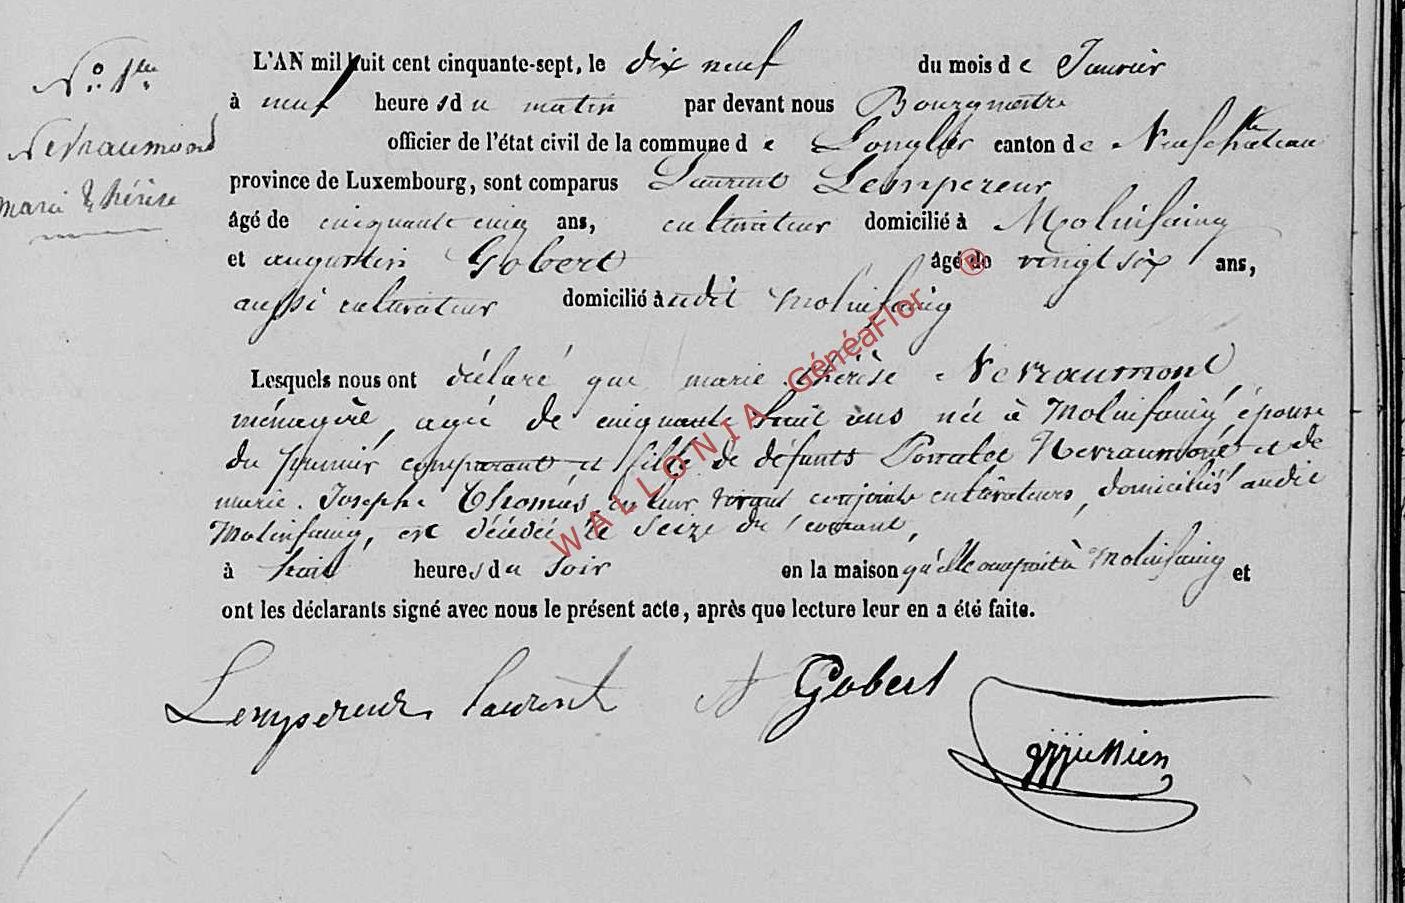 N° 1er
Nevraumond
marie thérèse
L'AN mil huit cent cinquante-sept, le dix neuf du mois de Janvier
à neuf heures du matin par devant nous Bourgmestre
officier de l'état civil de la commune de Longlier canton de Neufchâteau
province de Luxembourg, sont comparus Laurent Lempereur
âgé de cinquante cinq ans, cultivateur domicilié à Molinfaing
et augustin Gobert âgé de vingt six ans,
aussi cultivateur domicilié audit Molinfaing
Lesquels nous ont déclaré que marie thérèse Nevraumont
ménagère, agée de cinquante huit ans née à Molinfaing épouse
du premier comparant et fille de défunts Nevraumont et de
marie Josephe Thomas, en leur vivant conjoints cultivateurs, domiciliés audit
Molinfaing, est décédée le seize du courant,
à huit heures du soir en la maison qu'elle occupait à Molinfaing et
ont les déclarants signé avec nous le présent acte, après que lecture leur en a été faite.
Lempereur laurent A Gobert
WALLONIA GénéaFlor ®